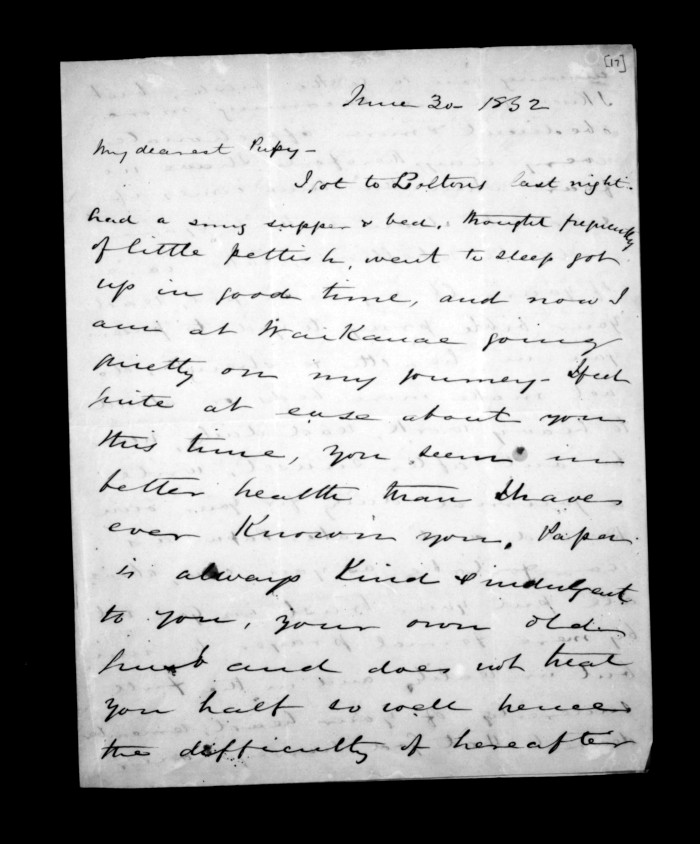 [17]
June 30 1852
My dearest Pupsy -
I got to Boltons last night -
had a snug supper & bed. thought frequently
of little pettish, went to sleep got
up in good time, and now I
am at Waikanae going
quietly on my journey - I feel
quite at ease about you
this time, you seem in
better health than I have
ever known you. Papa
is always kind & indulgent
to you, your own old
husband does not treat
you half so well hence
the difficulty of hereafter